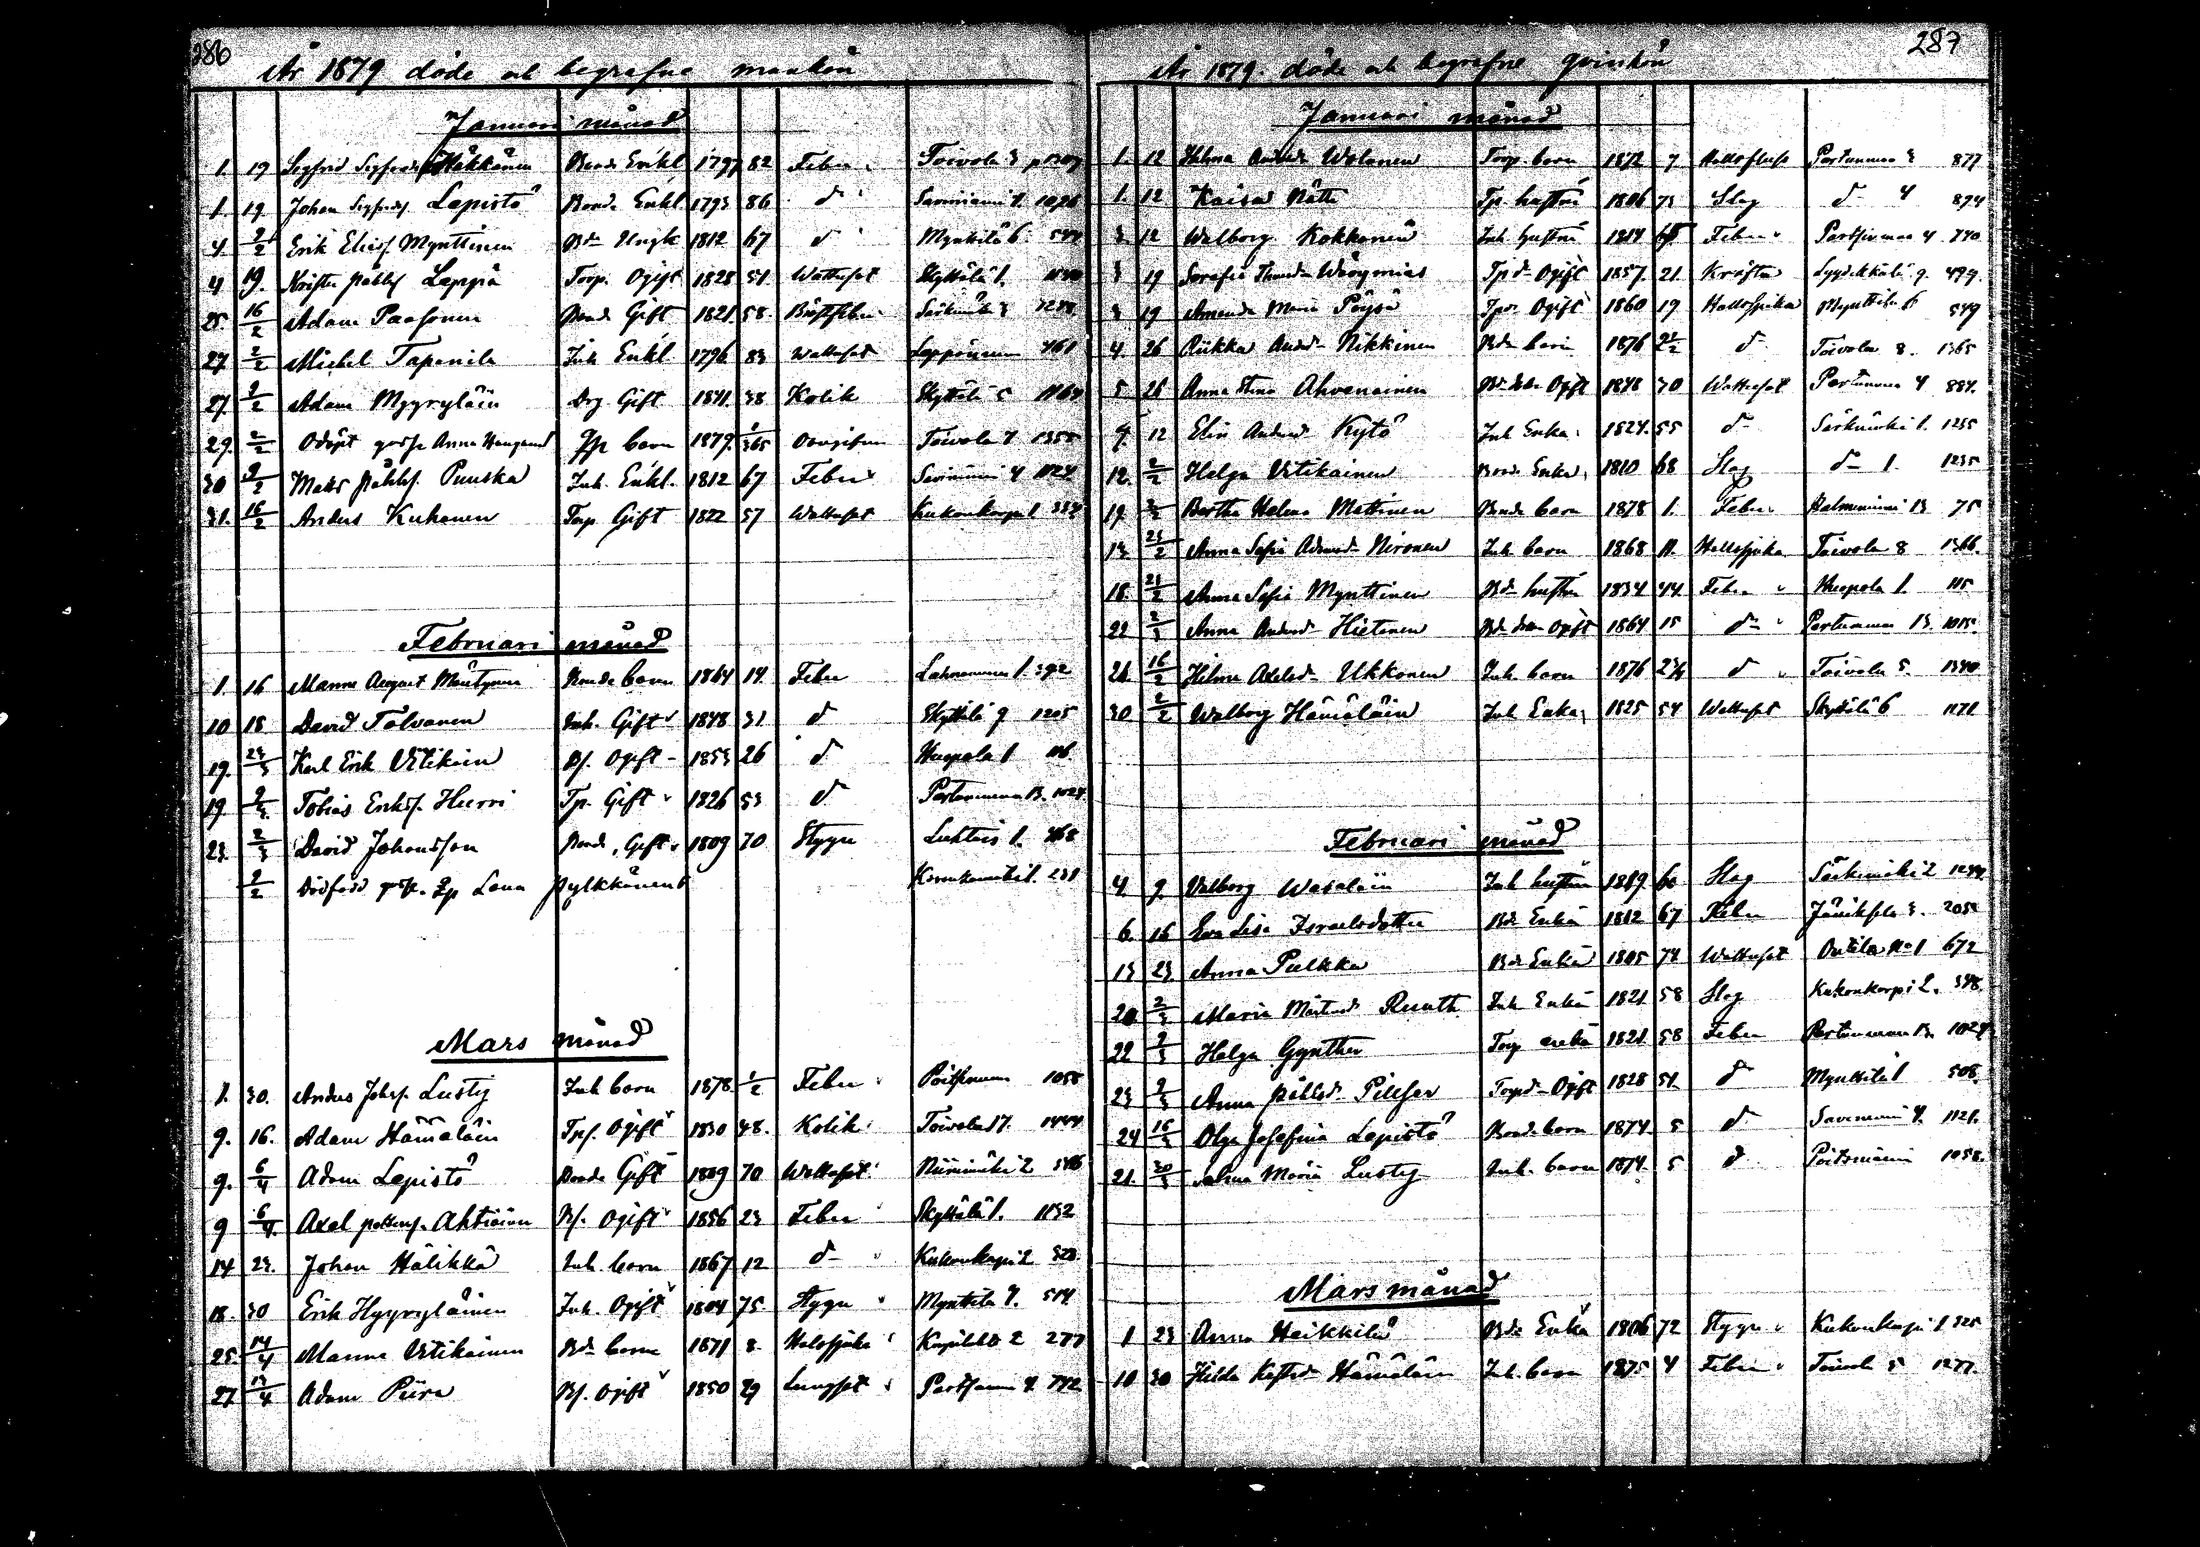 286
År 1879 döde och begrafne mankön
Januari månad
1. 19 Sigfrid Sigfrids Häkkänen Bonde Enkl 1797 82 Feber Toivola 3
1. 19 Johan Sigfrids. Lapistö Bonde Enkl 1793 86 d Saviniemi 4. 1026
4. 2/2 Erik Eliass. Mynttinen Bde 1812 67 d Mynttilä 6.
4 19. Krister Påhls Leppä Torp. Ogift 1828 51. Wattusot Skyttälä 1.
25. 16/2 Adam Paasonen Bond. Gift 1821. 58. Särkimäki 3
27. 2/2 Michel Tapanila Inh. Enkl. 1796 83 Wattusot 461
27. 2/2 Adam Myyryläin Drg. Gift 1841. 38 Kolik Skyttälä 5 1164
29. 2/2 Odöpt gosse Anna barn 1879. 1/365 Toivola 7 1355
30 2/2 Matts Påhls. Puuska Inh. Enkl. 1812 67 Feber Saviniemi 4 1124
31. 16/2 Anders Kuhanen Torp. Gift 1822 57 Wattusot Kukonkorpi 1 334
Februari månad
1. 16 Manne August Mäntynen Bonde barn 1864 14. Feber 1. 392
10 18 David Tolvanen Inh. Gift 1848 31 d Skyttälä 9 1205
19. 23/3 Karl Erik Vitikain Bs. Ogift 1853 26 d Huopola 1 116.
19. 2/3 Tobias Eriks. Hurri Tp. Gift 1826 53 d Partunmaa 13. 1024
23. 2/3 David Johansson Bond. Gift 1809 70 Stygn 1. 468
2/2 Dödfödd Lena Pylkkänens 1. 231
Mars månad
1. 30. Anders Johs. Lustig Inh barn 1878. 1/2 Feber 1058
9. 16. Adam Hämäläin Tps. Ogift 1830 48. Kolik Toivola 17. 1444
9. 6/4 Adam Lapistö Bonde Gift 1809 70 Wattusot Niinimäki 2
9 6/4. Axel Ahtiainen Bs. Ogift 1856 23 Feber Skyttälä 1. 1132
14 23. Johan Hälikkä Inh barn 1867 12 d Kukonkorpi 2 328
18. 30 Erik Hyyryläinen Inh. Ogift 1804 75 Stygn Mynttilä 7. 514
25. 14/4 Manne Vitikainen Bde barn 1871 8. Halssjuka 2 277
27. 13/4 Adam Piira Bs. Ogift 1850 29 Lungsot 4. 742
287
År 1879. döde och begrafne qvinkön
Januari månad
1. 12 Hilma Anders Wolanen Torp. barn 1872 7 Partunmaa 3 877
1. 12 Kaisa Nätti Tp. hustru 1806 73 Slag d 4 874
3. 12 Walborg Kokkonen Inh hustru 1814 65 Feber 4 740
3 19 Serafia Tpd. Ogift 1857. 21. Kräfta 9. 499.
3 19 Amanda Maria Pöysä Ogift 1860 19 Halssjuka Mynttilä 6 549
4. 26 Riikka Andersd. Nikkinen Bde barn 1876 2 1/2 d Toivola 8. 1365
5 26 Anna Stina Ahvenainen Ogift 1848 30 Wattusot Partunmaa 4 884.
7. 12 Elin Andersd Kytö Inh Enka 1824. 55 d Särkimäki 1. 1235
12. 2/2 Helga Vitikainen Bond. Enka 1810 68 Slag d 1. 1235
19. 2/2 Bertha Helena Mattinen Bonde barn 1878 1. Feber Halmeniemi 13 75
13. 23/2 Anna Sofia Adamsd. Nironen Inh barn 1868 11. Halssjuka Toivola 8 1366.
18. 23/2 Anna Sofia Mynttinen Bde hustru 1834 44. Feber Huopola 1. 115
22 2/3 Anna Andersd Hietanen Ogift 1864 15 d Partunmaa 13. 1015.
26. 16/2 Hilma Axelsd. Ukkonen Inh. barn 1876 2 3/4 d Toivola 5. 1340
30 2/2 Walborg Hämäläin Inh Enka 1825 54 Wattusot Skyttälä 6 1171
Februari månad
4. 9. Valborg Wasaläin Inh hustru 1819. 60 Slag Särkimäki 2 1244
6. 16 Eva Lisa Israelsdotter Bde Enka 1812 67 Feber 3. 2053
13 23 Anna Pulkka Bde Enka 1805 74 Wattusot No 1 672
20 2/3 Maria Mårtensd. Ruuth Inh Enka 1821 58 Slag Kukonkorpi 2. 348.
22 2/3 Helga Gynther Torp enka 1821 58 Feber Partunmaa 13. 1024
23 2/3 Anna Påhlsd. Pilssar Torpd. Ogift 1828 51. d Mynttilä 1 508.
24 16/3 Olga Josefina Lapistö Bond. barn 1874. 5 d Saviniemi 4. 1121.
21. 30/3 Salma Maria Lustig Inh. barn 1874. 5 d 1058.
Mars månad
1 23 Anna Heikkilä Bde Enka 1806 72 Stygn Kukonkorpi 1 325
10 30 Hilda Hämäläin Inh. barn 1875 4 Feber Toivola 5 1277.